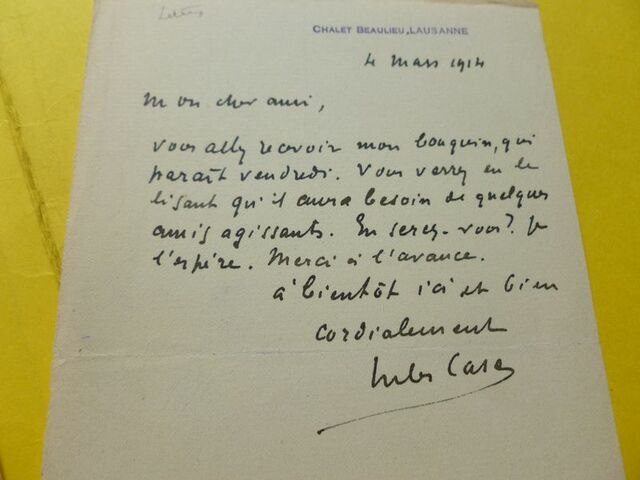 Lettres
CHALET BEAULIEU, LAUSANNE
4 mars 1914
Mon cher ami,
Vous allez recevoir mon bouquin, qui
paraît vendredi. Vous verrez en le
lisant qu'il aura besoin de quelques
amis agissants. En serez-vous? Je
l'espère. Merci à l'avance.
à bientôt ici et bien
cordialement
Jules Case